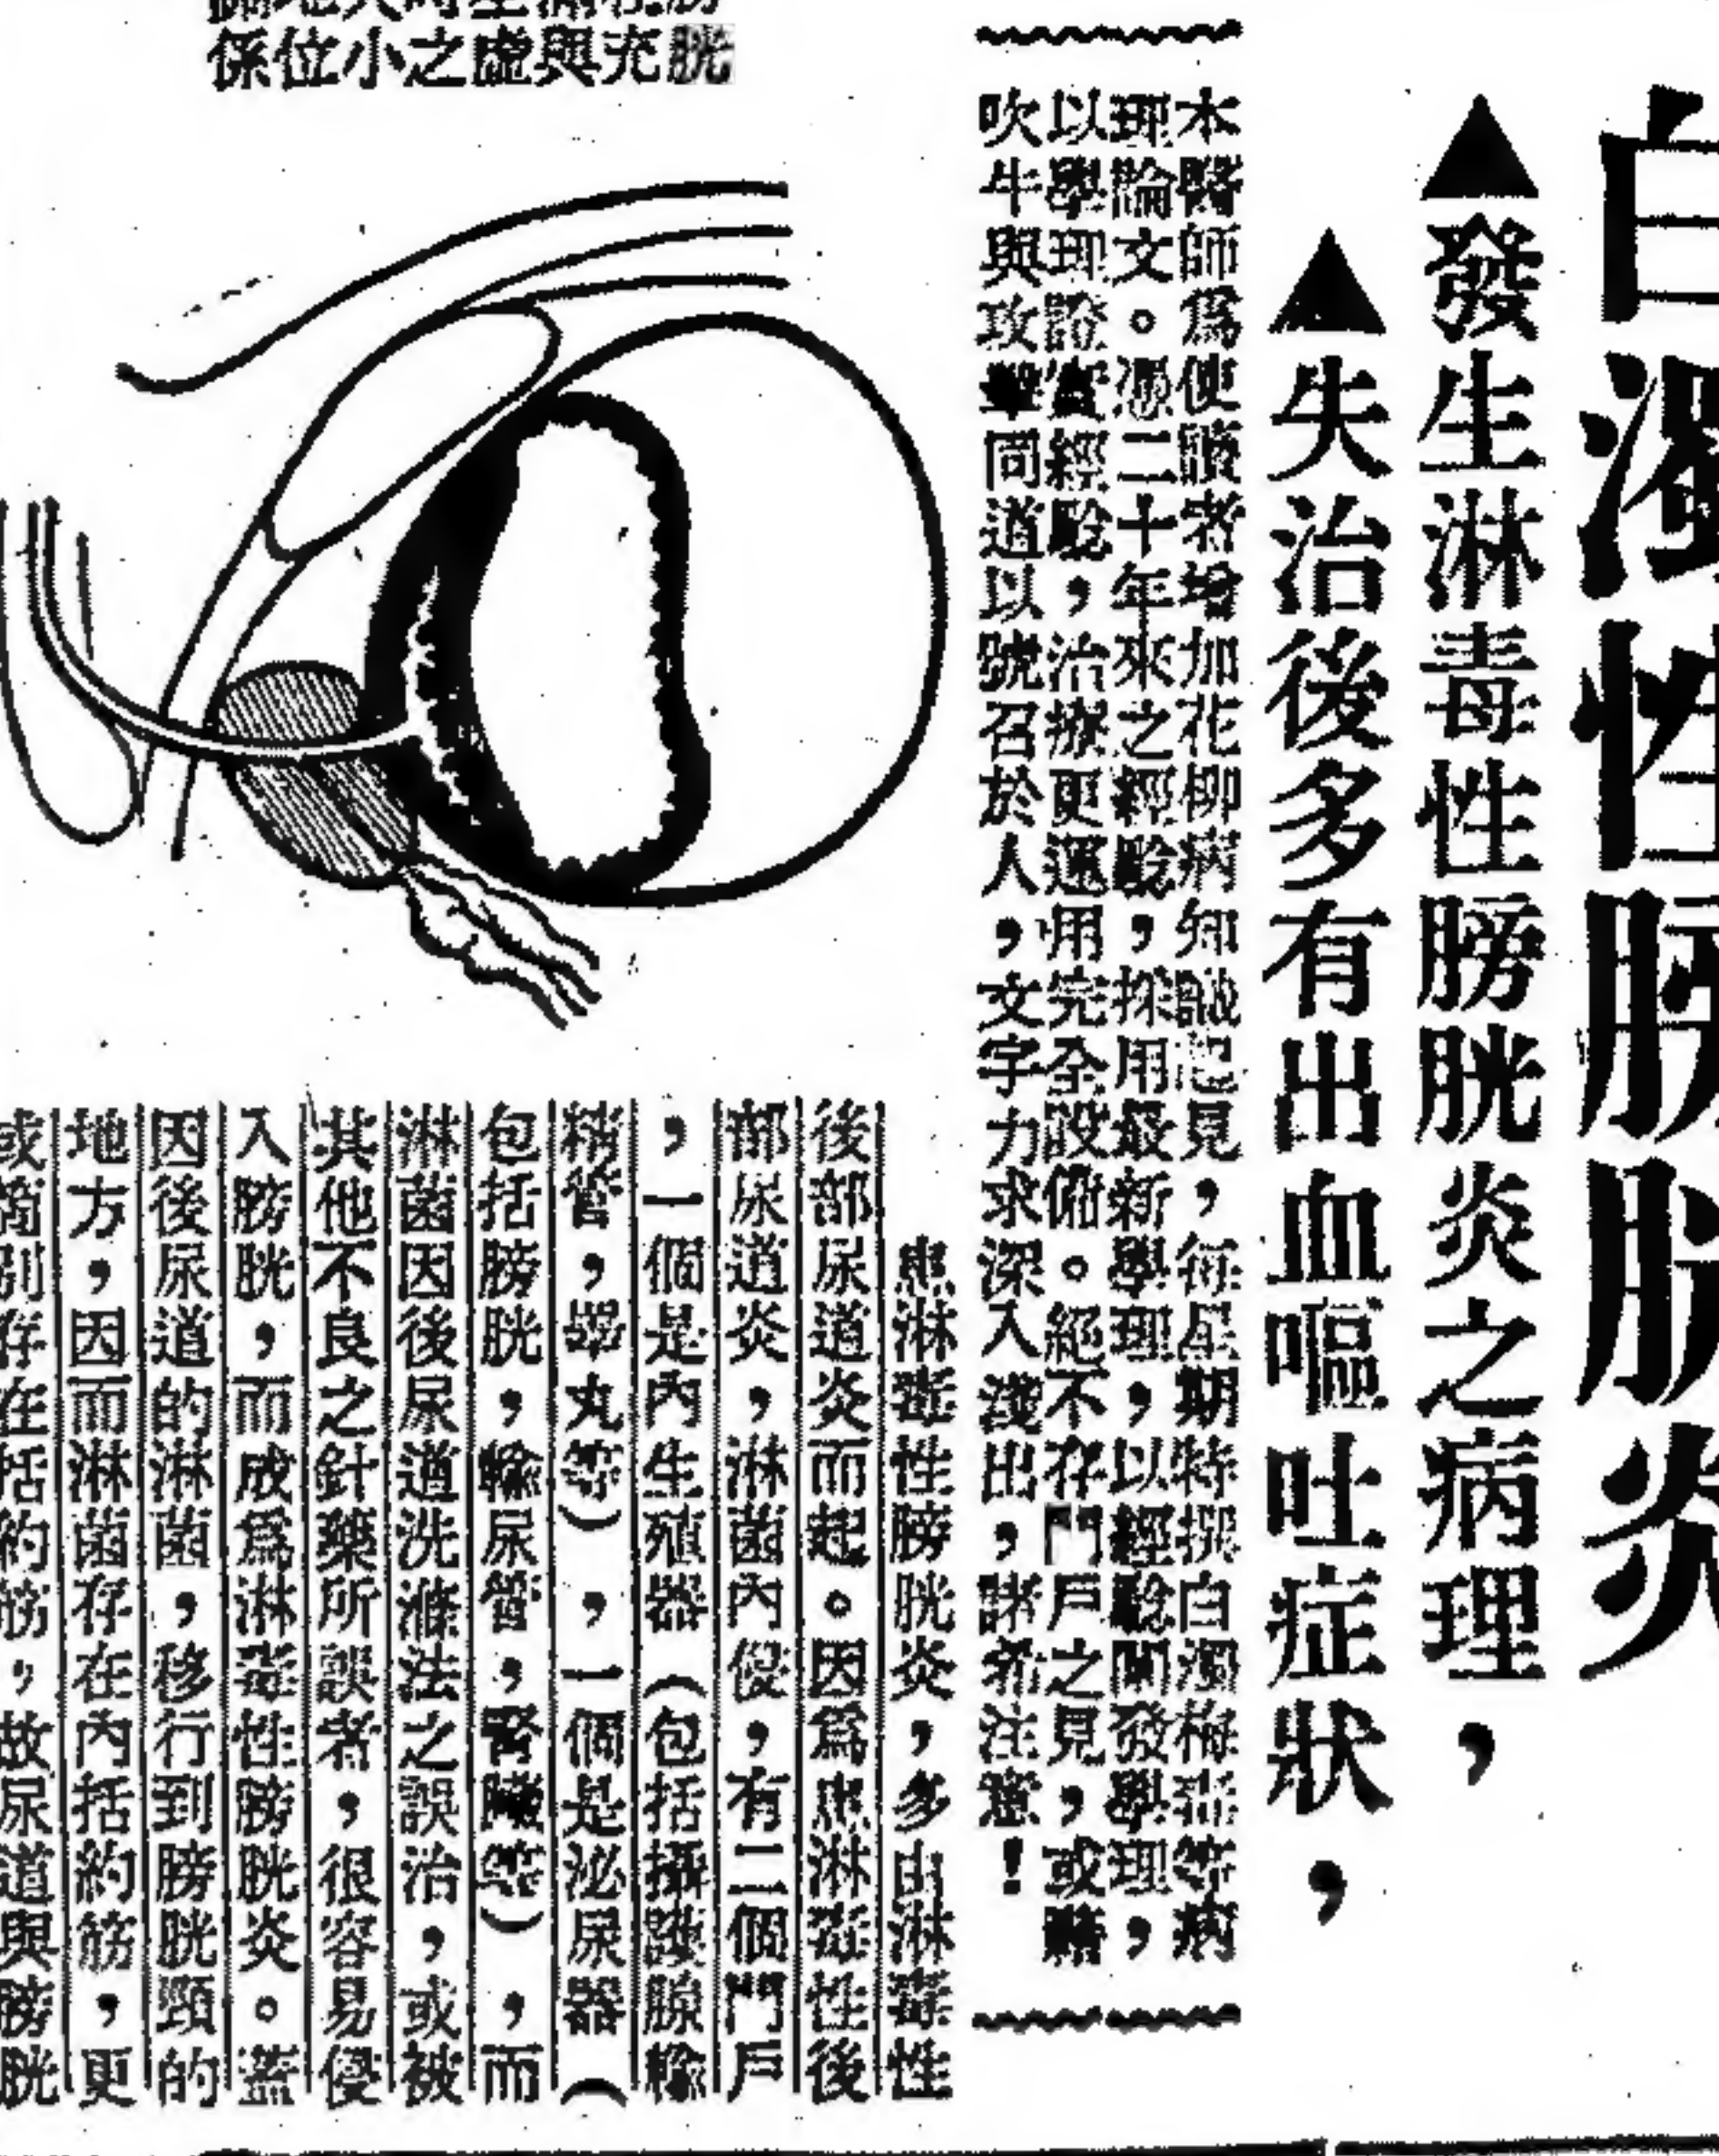 白濁性膀胱炎
▲發生淋毒性膀胱炎之病理，
▲失治後多有出血嘔吐症狀，
本醫師爲使讀者增加花柳病知識起見，每星期特撰白濁梅毒等病
理論文。憑二十年來之經驗，採用最新學理，以經驗闡發學理，
以學理證實經驗，治療更運用完全設備。絕不存門戶之見，或藉
吹牛與攻擊同道以號召於人，文字力求深入淺出，諸希注意！
胱充與虛之小位係
患淋毒性膀胱炎，多由淋毒性
後部尿道炎而起。因爲患淋毒性後
部尿道炎，淋菌內侵，有二個門戶
，一個是內生殖器（包括攝護腺輸
精管，睪丸等），一個是泌尿器（
包括膀胱，輸尿管，腎臟等），而
淋菌因後尿道洗滌法之誤治，或被
其他不良之針藥所誤者，很容易侵
入膀胱，而成爲淋毒性膀胱炎。蓋
因後尿道的淋菌，移行到膀胱頸的
地方，因而淋菌存在內括約筋，更
或個別存在括約筋，故尿道與膀胱